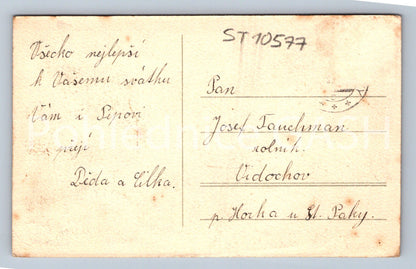 Všecko nejlepší
k Vašemu svátku
Vám i Pepovi
přejí
Děda a Cilka.
ST10577
Pan
Josef Fauchman
rolník.
Vidochov
p. Horka u St. Paky.